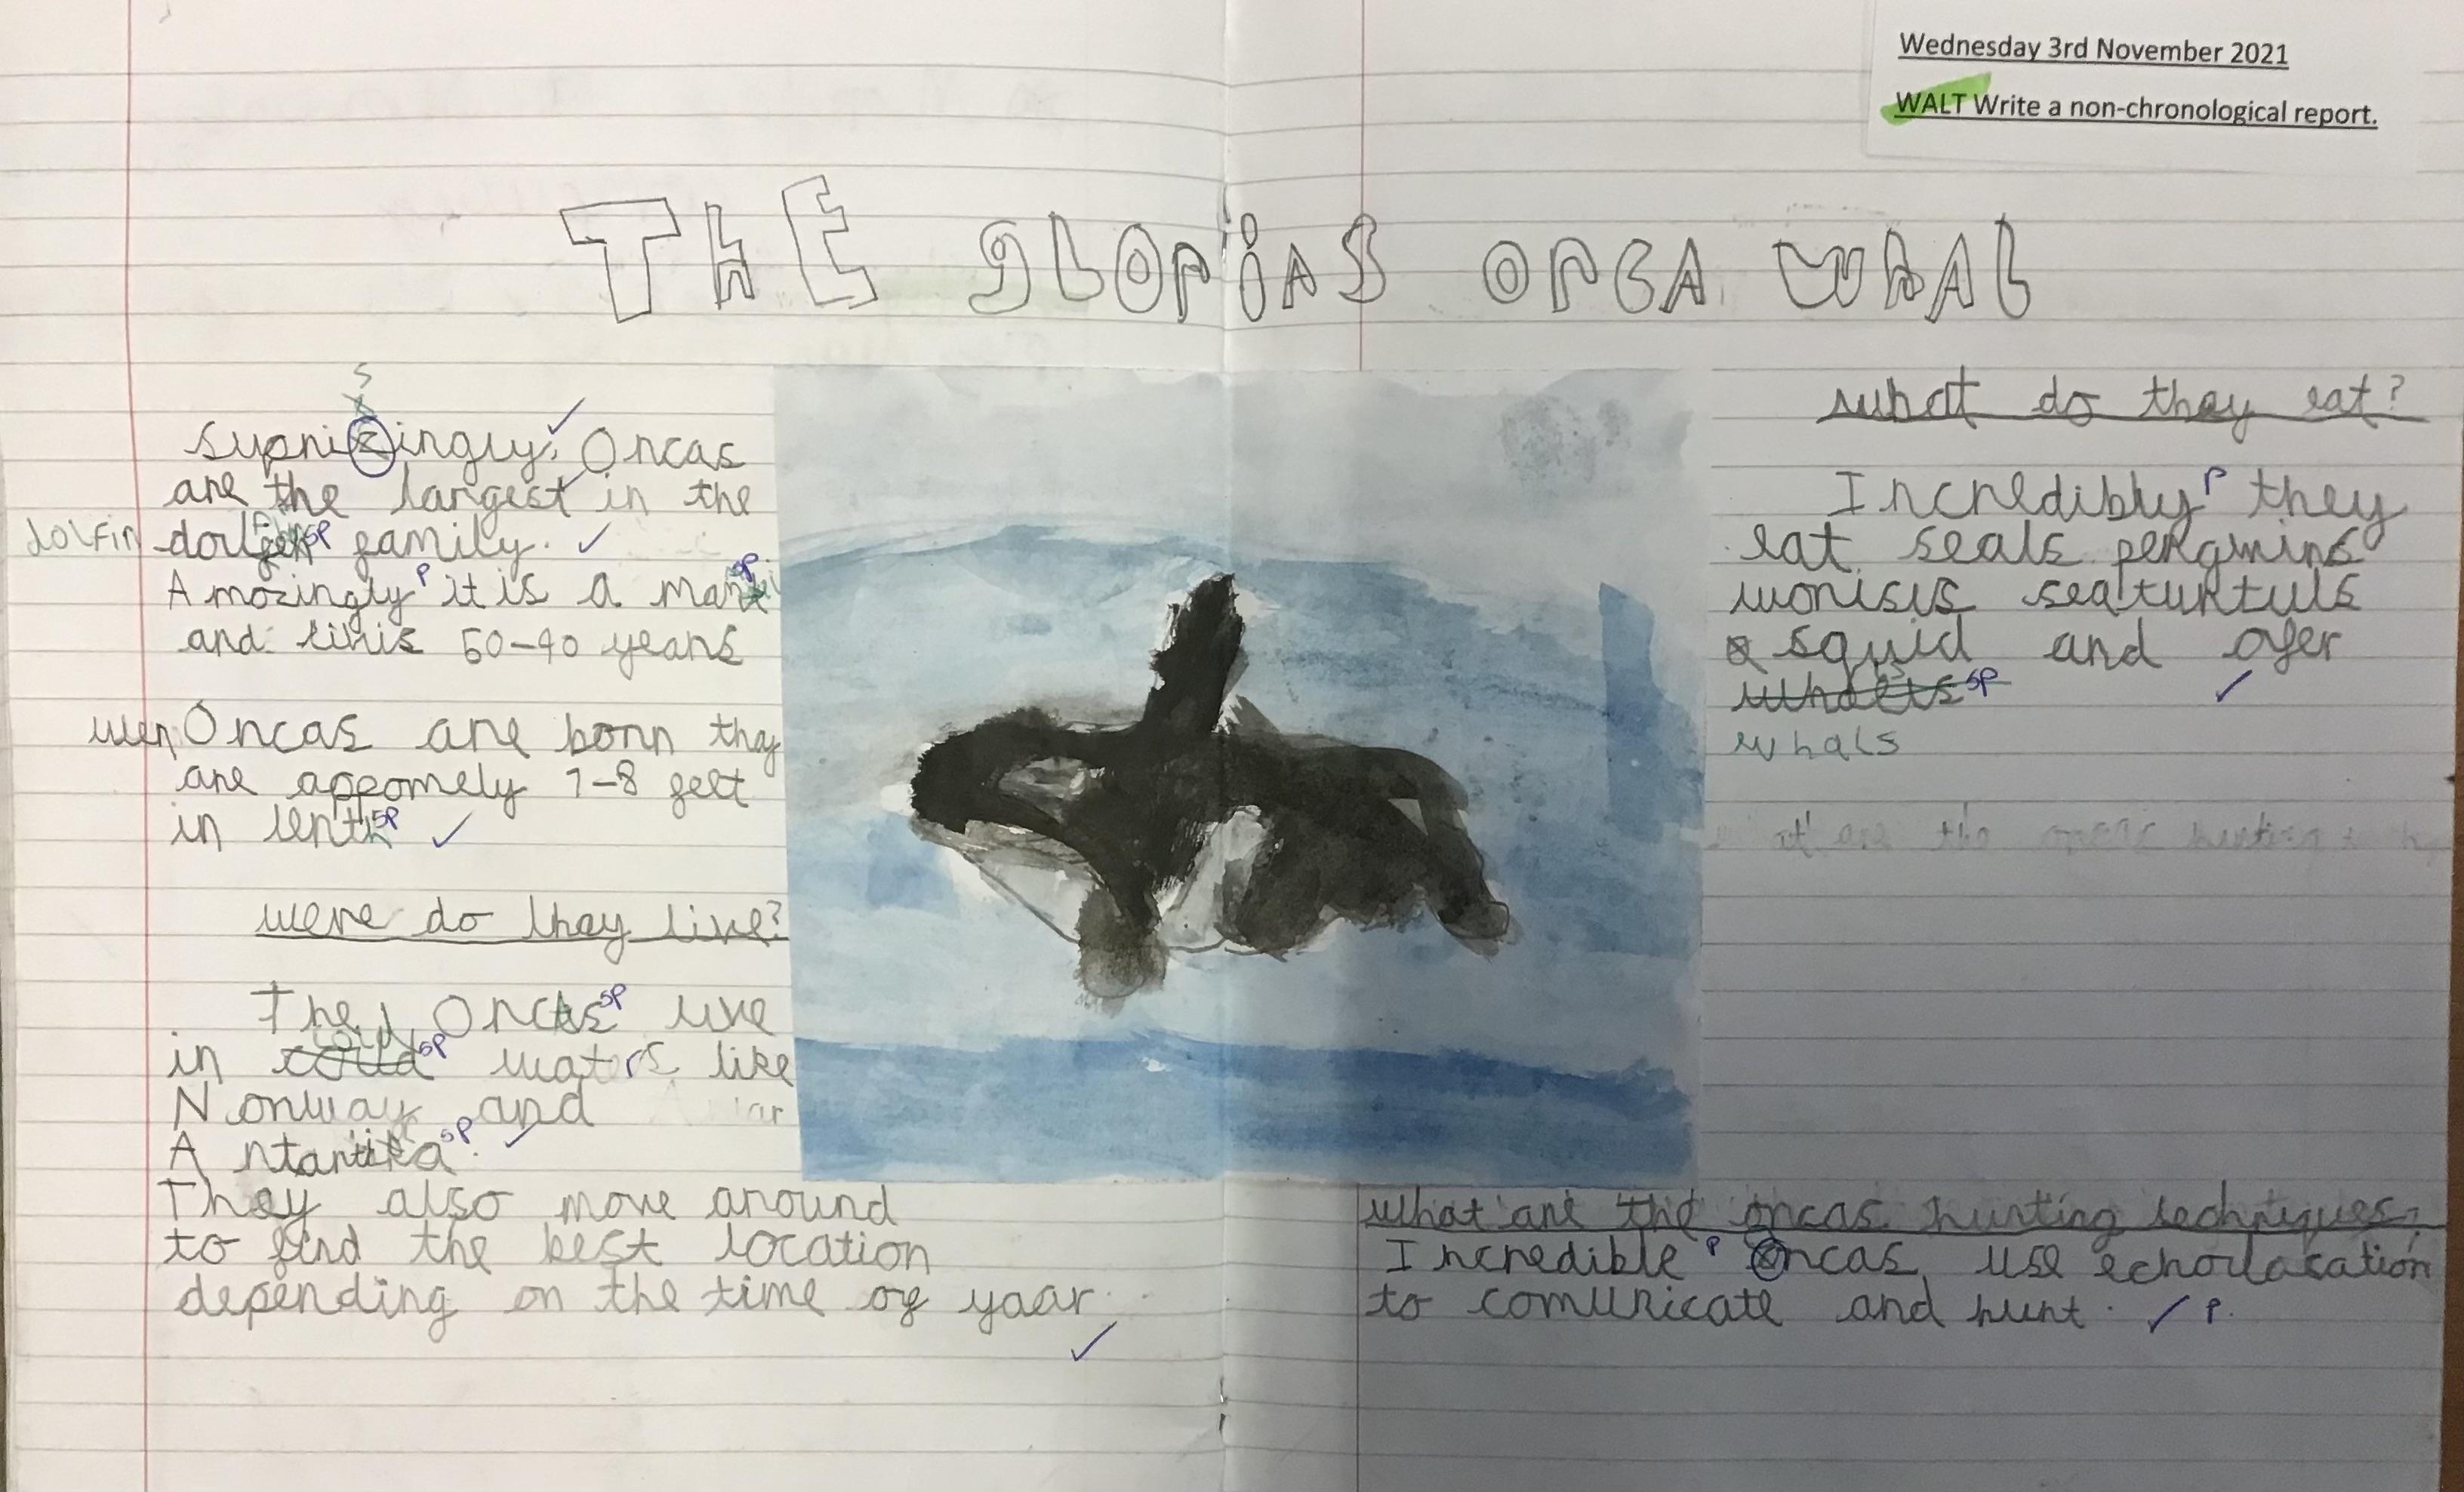 Wednesday 3rd November 2021
WALT Write a non-chronological report.
THE gLOriAS OrCA WHAL
s
suprizingly, Orcas
are the largest in the
dolfin family.
Amazingly P it is a
and livis 50-90 years
wen Orcas are born thay
are appromely 7-8 feet
in lenth sp
were do thay live?
The Orcas sp live
in cold sp waters like
Norway and
Antartika sp.
Thay also move around
to find the best location
depending on the time of yaar.
what do thay eat?
Incredibly P they
eat seals pergwins
worisis seaturtuls
squid and ofer
whals sp
whals
what are the orcas hunting techniques?
Incredible P Orcas use echorlacation
to comunicate and hunt. P.